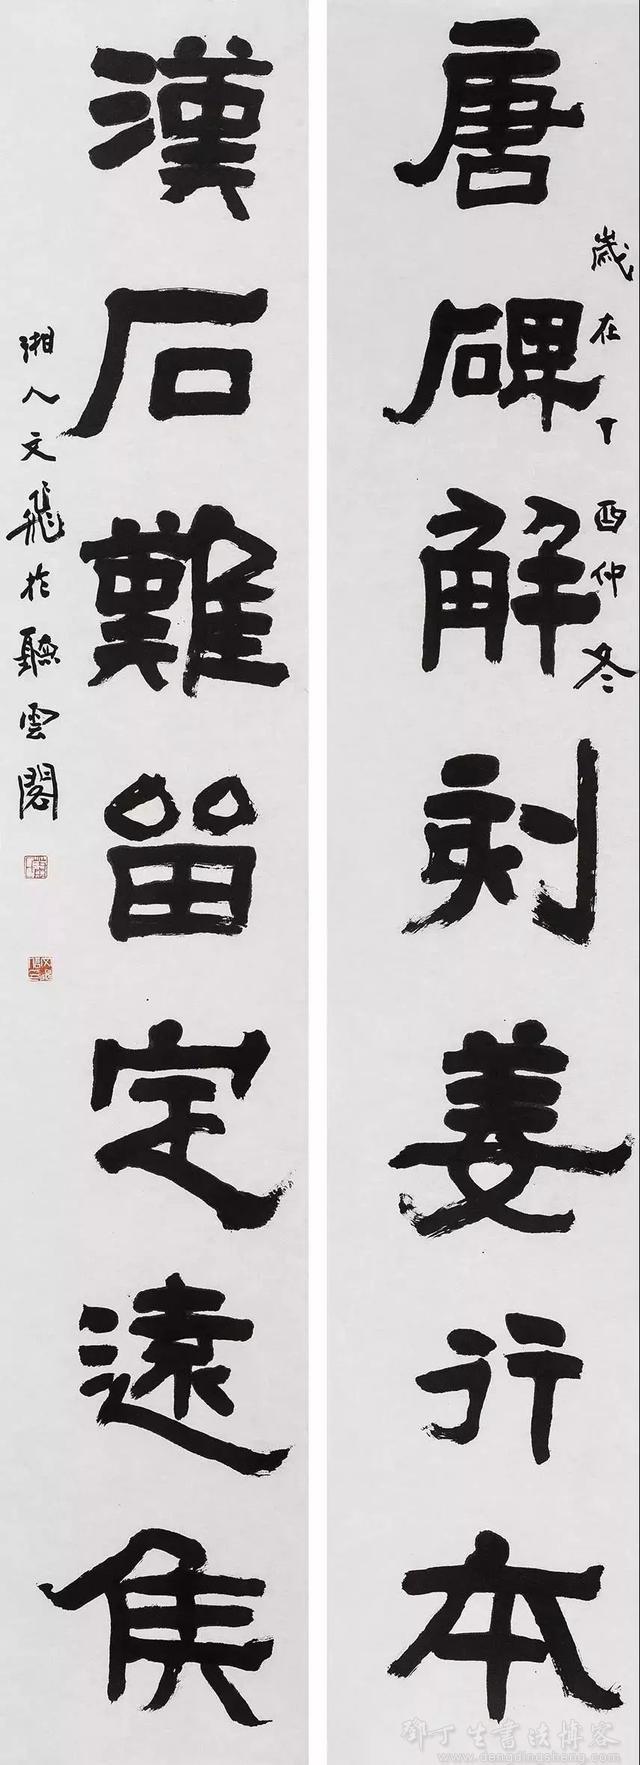 唐碑解刻姜行本
歲在丁酉仲冬
漢石難留定遠侯
湘人文飛於聽雲閣
鄧丁生書法博客
www.dengdingsheng.com